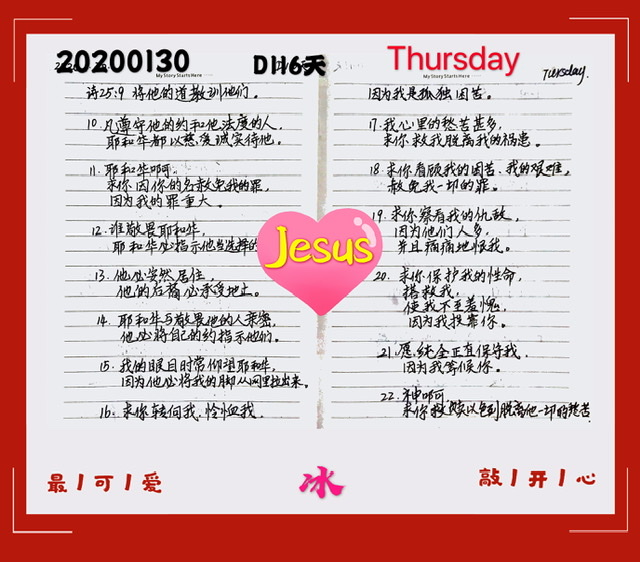 20200130
D116天
Thursday
My Story Starts Here
My Story Starts Here
Tursday.
诗25:9 将他的道教训他们。
10. 凡遵守他的约和他法度的人,
耶和华都以慈爱诚实待他。
11. 耶和华啊,
求你因你的名赦免我的罪,
因为我的罪重大。
12. 谁敬畏耶和华,
耶和华必指示他当选择的
13. 他必安然居住,
他的后裔必承受地土。
14. 耶和华与敬畏他的人亲密,
他必将自己的约指示他们。
15. 我的眼目时常仰望耶和华,
因为他必将我的脚从网里拉出来。
16. 求你转向我,怜恤我,
因为我是孤独困苦。
17. 我心里的愁苦甚多,
求你救我脱离我的祸患。
18. 求你看顾我的困苦、我的艰难,
赦免我一切的罪。
19. 求你察看我的仇敌,
因为他们人多,
并且痛痛地恨我。
20. 求你保护我的性命,
搭救我,
使我不至羞愧,
因为我投靠你。
21. 愿纯全正直保守我,
因为我等候你。
22. 神啊,
求你救赎以色列脱离他一切的愁苦
Jesus
最丨可丨爱
冰
敲丨开丨心